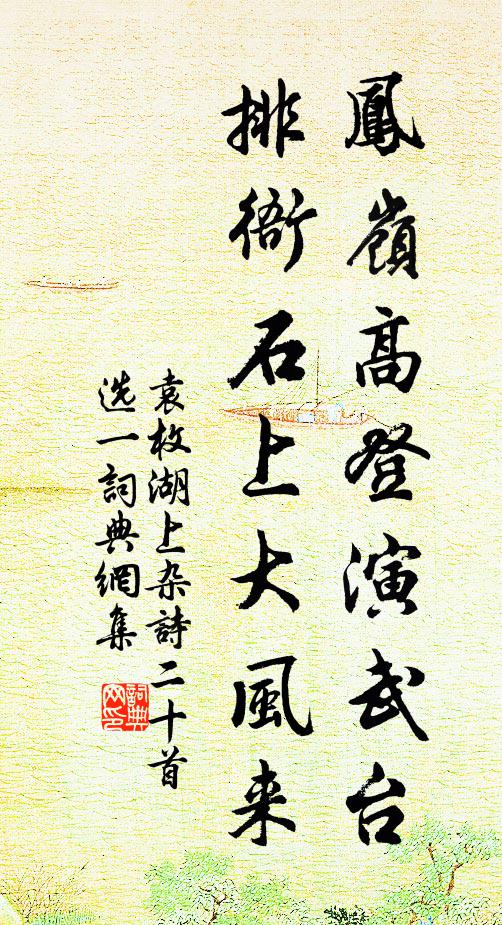 鳳嶺高登演武台
排衙石上大風来
袁枚湖上杂詩二十首
选一詞典網集
詞典网印